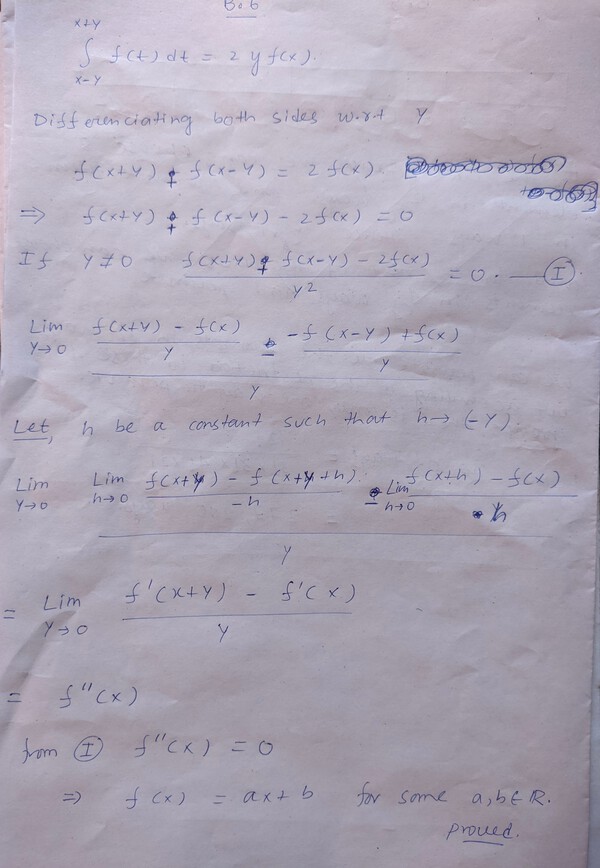 B.6
x+y
∫ f(t) dt = 2 y f(x).
x-y
Differenciating both sides w.r.t y
f(x+y) + f(x-y) = 2 f(x).
⇒ f(x+y) + f(x-y) - 2f(x) = 0
If y≠0 f(x+y) + f(x-y) - 2f(x) / y² = 0. — (I)
Lim y→0 f(x+y) - f(x) / y - -f(x-y) + f(x) / y
y
Let, h be a constant such that h→ (-y)
Lim y→0 Lim h→0 f(x+y) - f(x+y+h) / -h - Lim h→0 f(x+h) - f(x) / h
y
= Lim y→0 f'(x+y) - f'(x) / y
= f''(x)
from (I) f''(x) = 0
⇒ f(x) = ax+b for some a,b∈R.
proved.